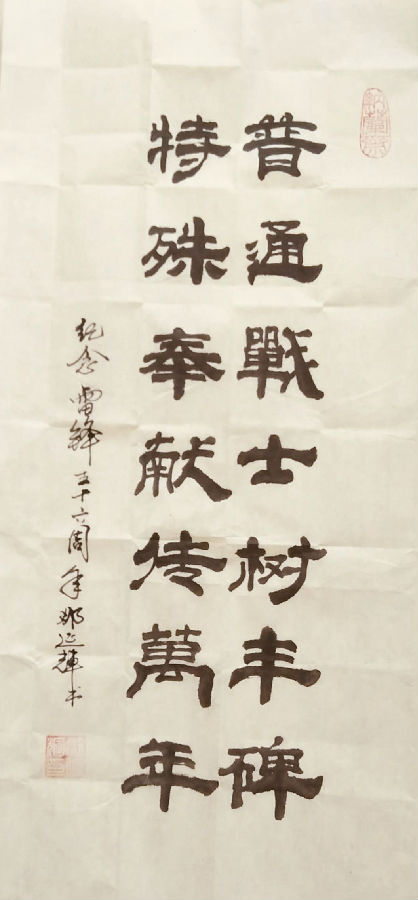 普通戰士树丰碑
特殊奉献传萬年
纪念雷锋五十六周年邓延辉书